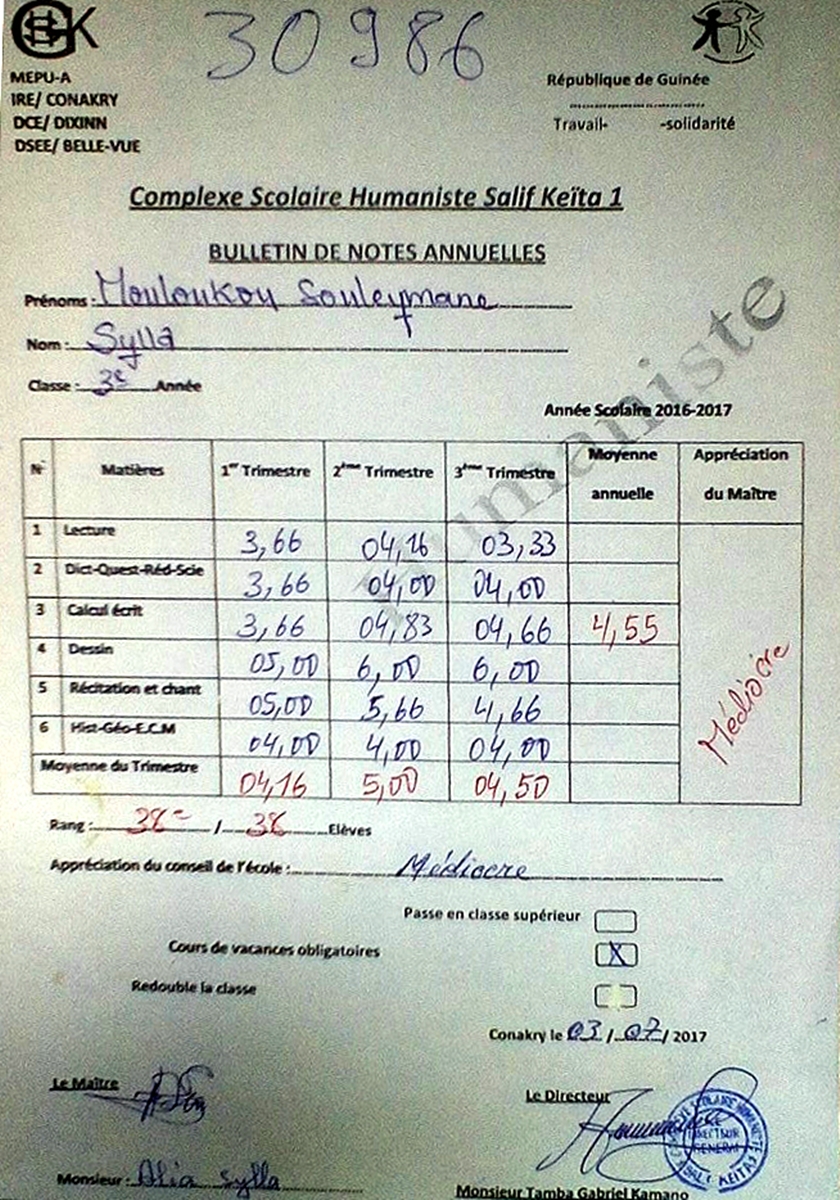 30986
MEPU-A
IRE/ CONAKRY
DCE/ DIXINN
DSEE/ BELLE-VUE
République de Guinée
Travail- -solidarité
Complexe Scolaire Humaniste Salif Keïta 1
BULLETIN DE NOTES ANNUELLES
Prénoms : Mouloukou Souleymane
Nom : Sylla
Classe : 3e Année
Année Scolaire 2016-2017
Humaniste
N° Matières 1er Trimestre 2ème Trimestre 3ème Trimestre Moyenne annuelle Appréciation du Maître
1 Lecture 3,66 04,16 03,33
2 Dict-Quest-Réd-Scie 3,66 04,00 04,00
3 Calcul écrit 3,66 04,83 04,66 4,55
4 Dessin 05,00 6,00 6,00
5 Récitation et chant 05,00 5,66 4,66
6 Hist-Géo-E.C.M 04,00 4,00 04,00
Médiocre
Moyenne du Trimestre 04,16 5,00 04,50
Rang : 38e / 38 Elèves
Appréciation du conseil de l'école : Médiocre
Passe en classe supérieur
Cours de vacances obligatoires X
Redouble la classe
Conakry le 03/07/2017
Le Maître
Le Directeur
DIRECTEUR
GENERAL
Monsieur : Alia Sylla
Monsieur Tamba Gabriel Kamano